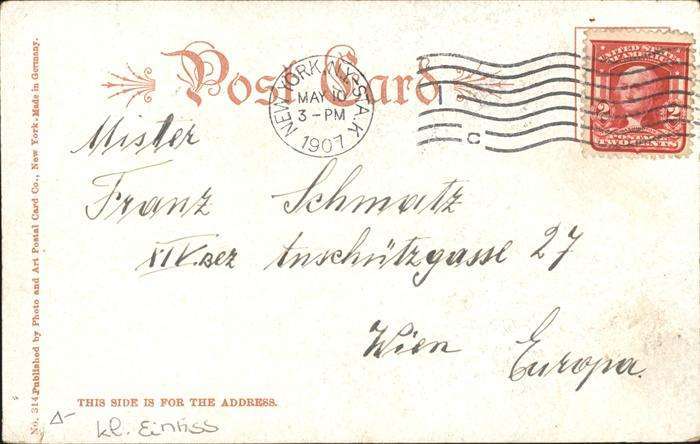 Post Card
NEW YORK, N.Y. STA. K
MAY 10
3-PM
1907
C
UNITED STATES
OF AMERICA
2 2
TWO CENTS
Mister
Franz Schmatz
XIV. Bez Anschützgasse 27
Wien Europa.
THIS SIDE IS FOR THE ADDRESS.
No. 314. Published by Photo and Art Postal Card Co., New York-Made in Germany.
kl. Einriss